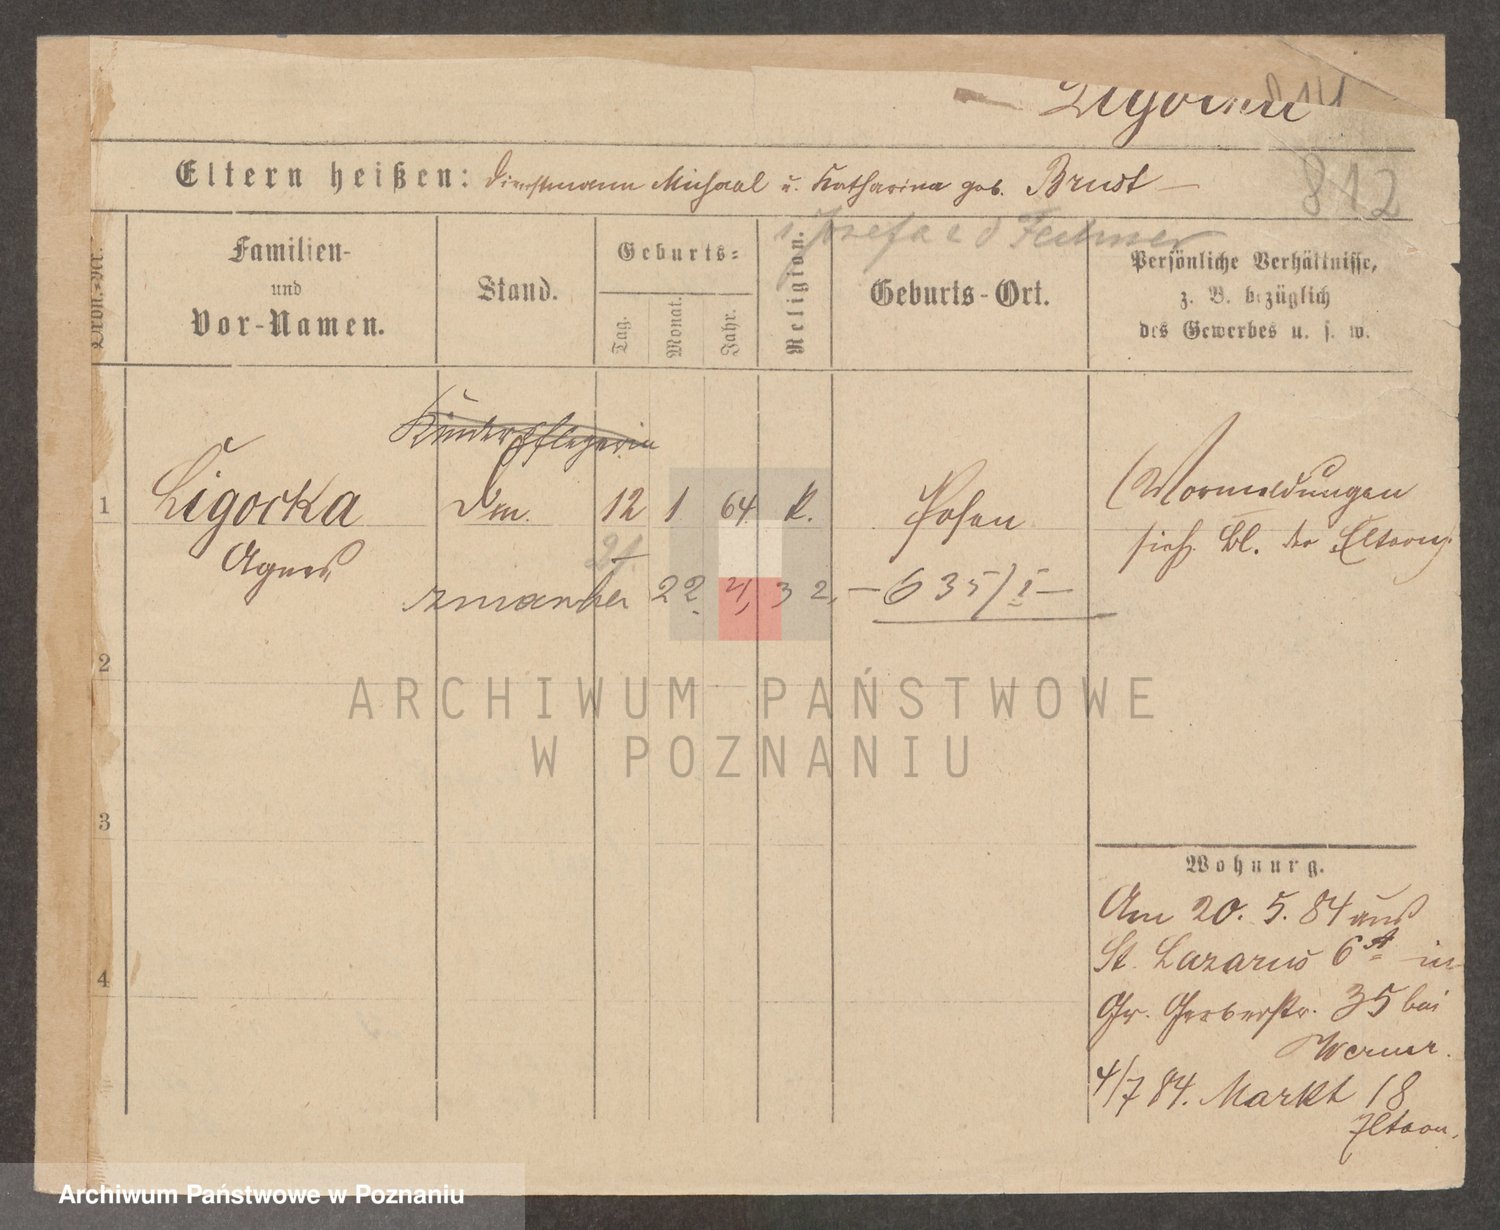 Ligocka
814
812
Eltern heißen: Dienstmann Michael u. Katharina geb. Brust
Josefa Fechner
Kron.-Nr.
Familien-
und
Vor-Namen.
Stand.
Geburts-
Tag.
Monat.
Jahr.
Religion.
Geburts-Ort.
Persönliche Verhältnisse,
z. B. bezüglich
des Gewerbes u. s. w.
Kinderpflegerin
1 Ligocka Dm. 12 1 64 K. Posen (Vormeldungen
Agnes sieh. Bl. der Eltern)
24.
zmarła 22. 4, 32, – 635/I –
2
3
4
Wohnung.
Am 20. 5. 84 aus
St. Lazarus 6A in
Gr. Gerberstr. 35 bei
Werner.
4/7 84. Markt 18
Eltern.
ARCHIWUM PAŃSTWOWE
W POZNANIU
Archiwum Państwowe w Poznaniu